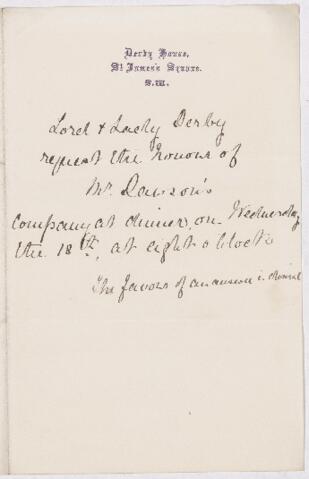 Derby House,
St James's Square.
S.W.
Lord & Lady Derby
request the honour of
Mr. Dawson's
company at dinner, on Wednesday
the 18th, at eight o'clock
The favour of an answer is desired